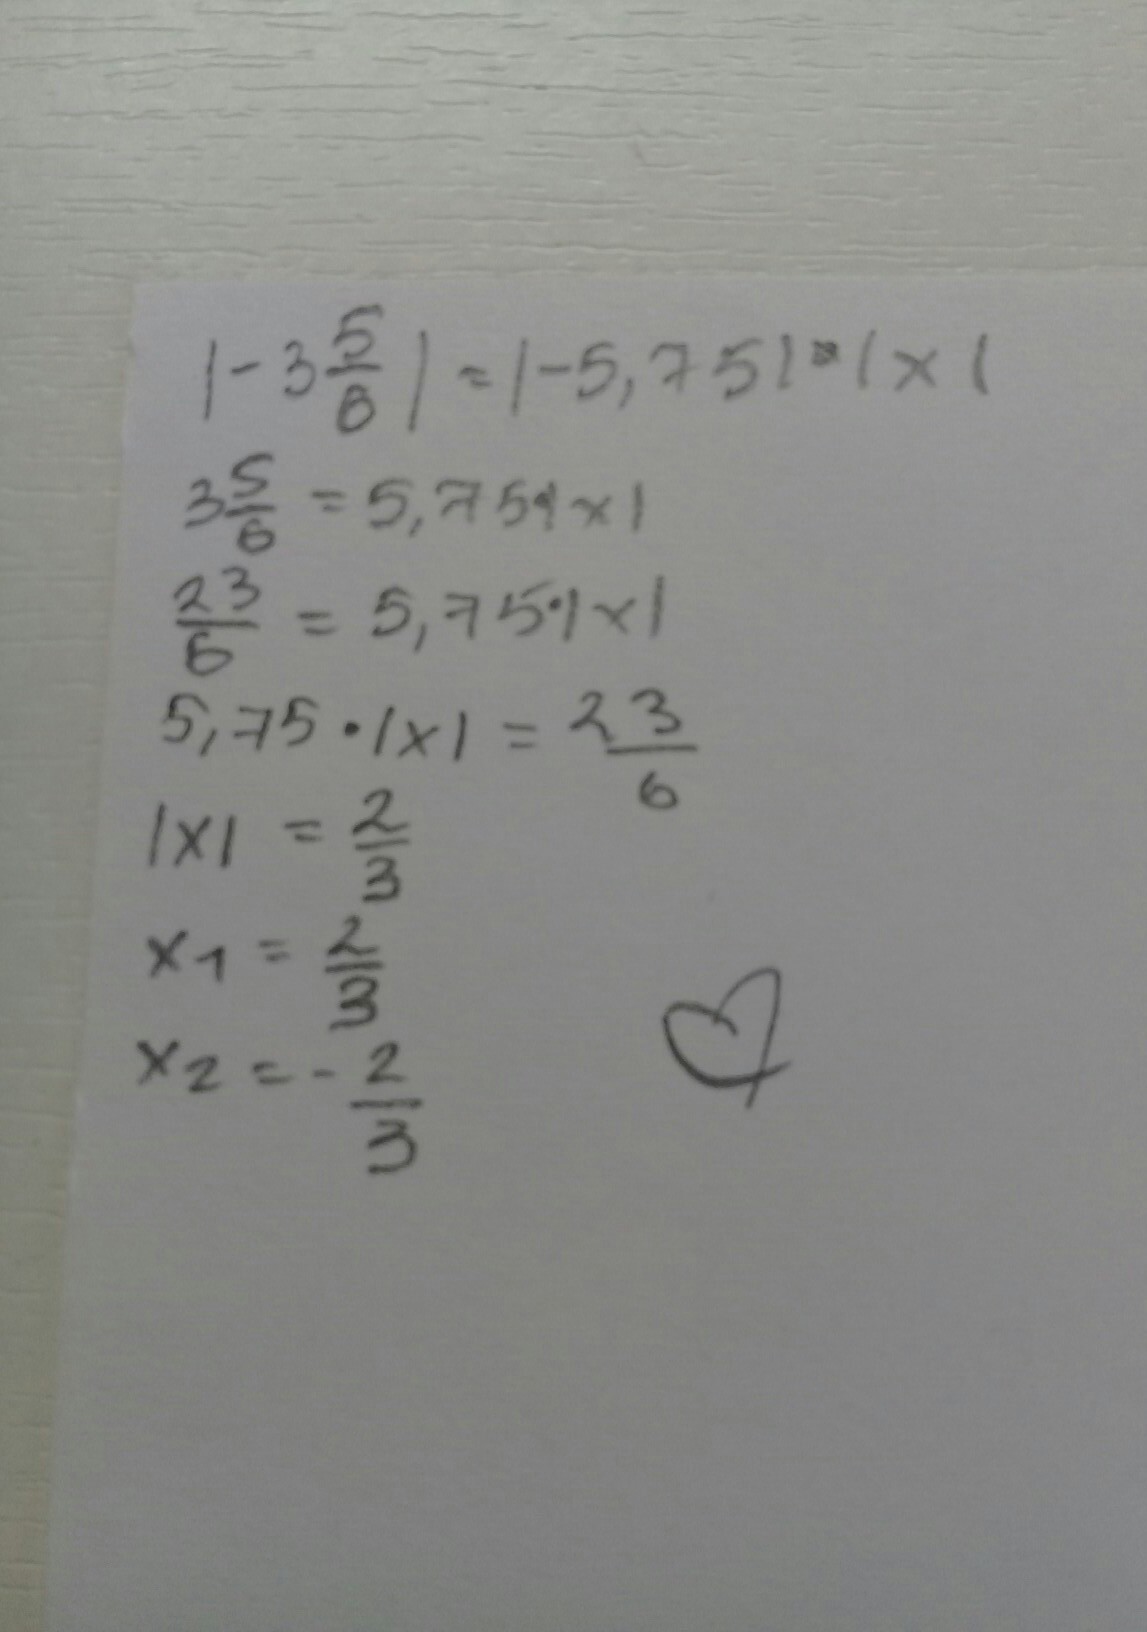 |-3 5/6| = |-5,75|·|x|
3 5/6 = 5,75·|x|
23/6 = 5,75·|x|
5,75·|x| = 23/6
|x| = 2/3
x1 = 2/3
x2 = -2/3